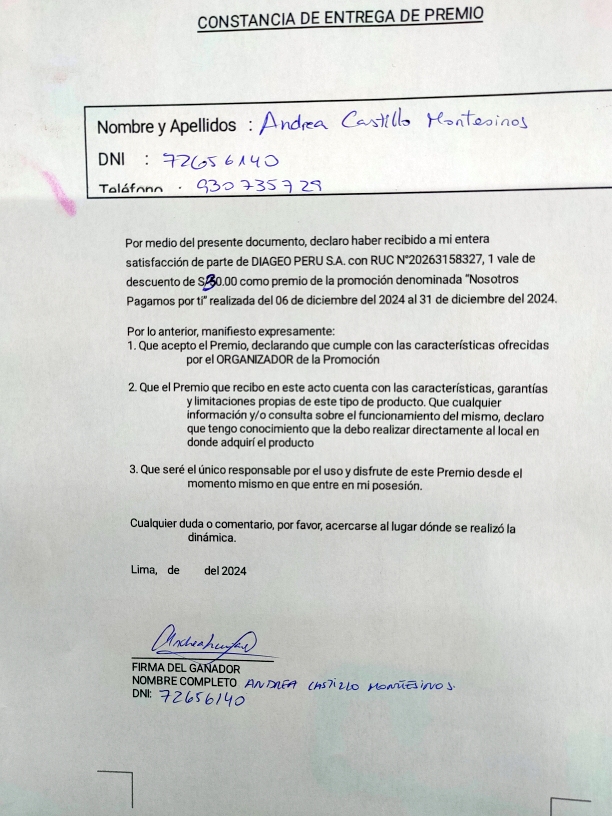 CONSTANCIA DE ENTREGA DE PREMIO
Nombre y Apellidos : Andrea Castillo Montesinos
DNI : 72656140
Teléfono : 930735729
Por medio del presente documento, declaro haber recibido a mi entera
satisfacción de parte de DIAGEO PERU S.A. con RUC N°20263158327, 1 vale de
descuento de S/30.00 como premio de la promoción denominada "Nosotros
Pagamos por ti" realizada del 06 de diciembre del 2024 al 31 de diciembre del 2024.
Por lo anterior, manifiesto expresamente:
1. Que acepto el Premio, declarando que cumple con las características ofrecidas
por el ORGANIZADOR de la Promoción
2. Que el Premio que recibo en este acto cuenta con las características, garantías
y limitaciones propias de este tipo de producto. Que cualquier
información y/o consulta sobre el funcionamiento del mismo, declaro
que tengo conocimiento que la debo realizar directamente al local en
donde adquirí el producto
3. Que seré el único responsable por el uso y disfrute de este Premio desde el
momento mismo en que entre en mi posesión.
Cualquier duda o comentario, por favor, acercarse al lugar dónde se realizó la
dinámica.
Lima, de del 2024
FIRMA DEL GANADOR
NOMBRE COMPLETO ANDREA CASTILLO MONTESINOS.
DNI: 72656140